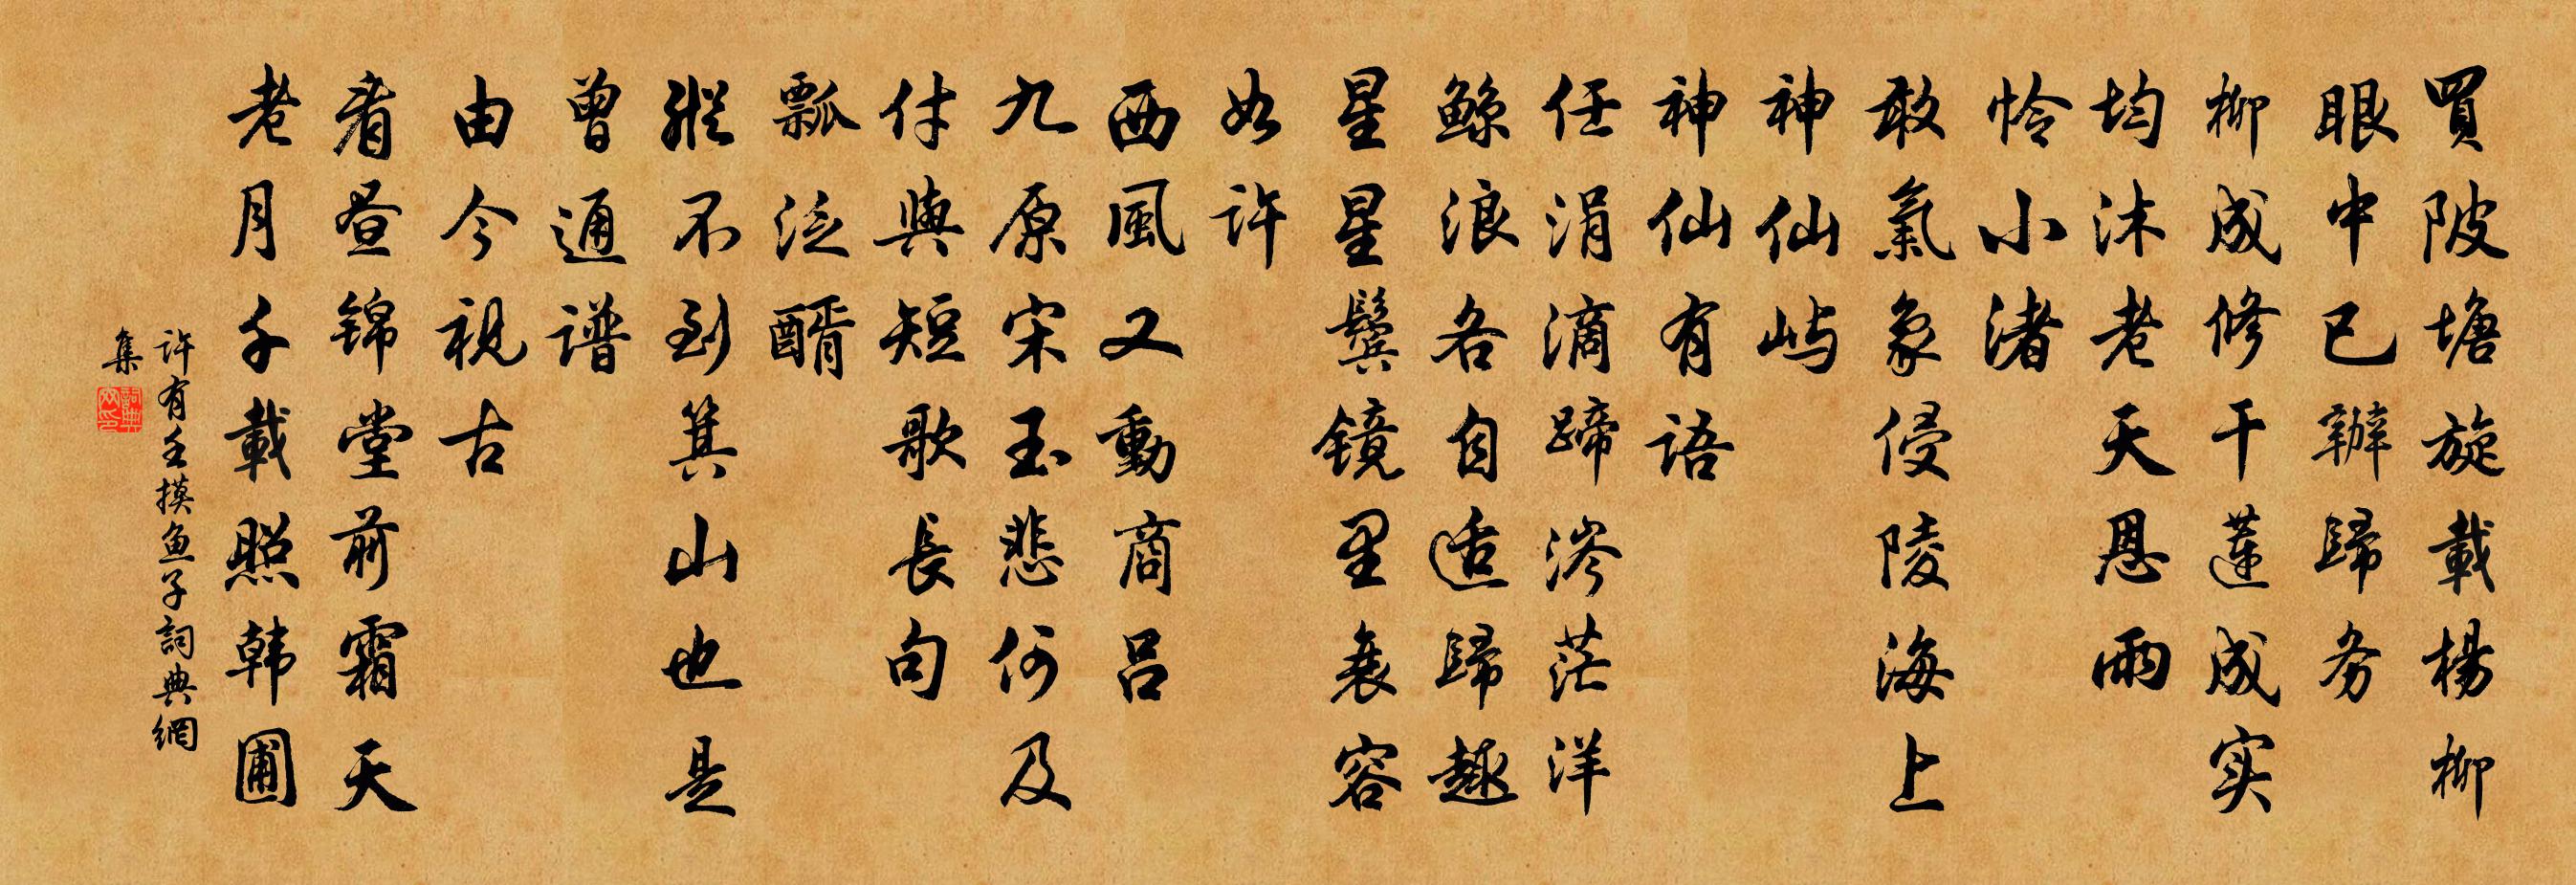 買陂塘旋載楊柳
眼中已辦歸务
柳成修干蓮成实
均沐老天恩雨
怜小渚
敢氣象侵陵海上
神仙屿
神仙有语
任涓滴蹄涔茫洋
鲸浪各自适歸趣
星星鬓镜里衰容
如许
西風又動商吕
九原宋玉悲何及
付與短歌長句
瓢泛醑
縱不到箕山也是
曾通谱
由今視古
看昼锦堂前霜天
老月千載照韩圃
许有壬摸鱼子詞典網
集
詞典
网印